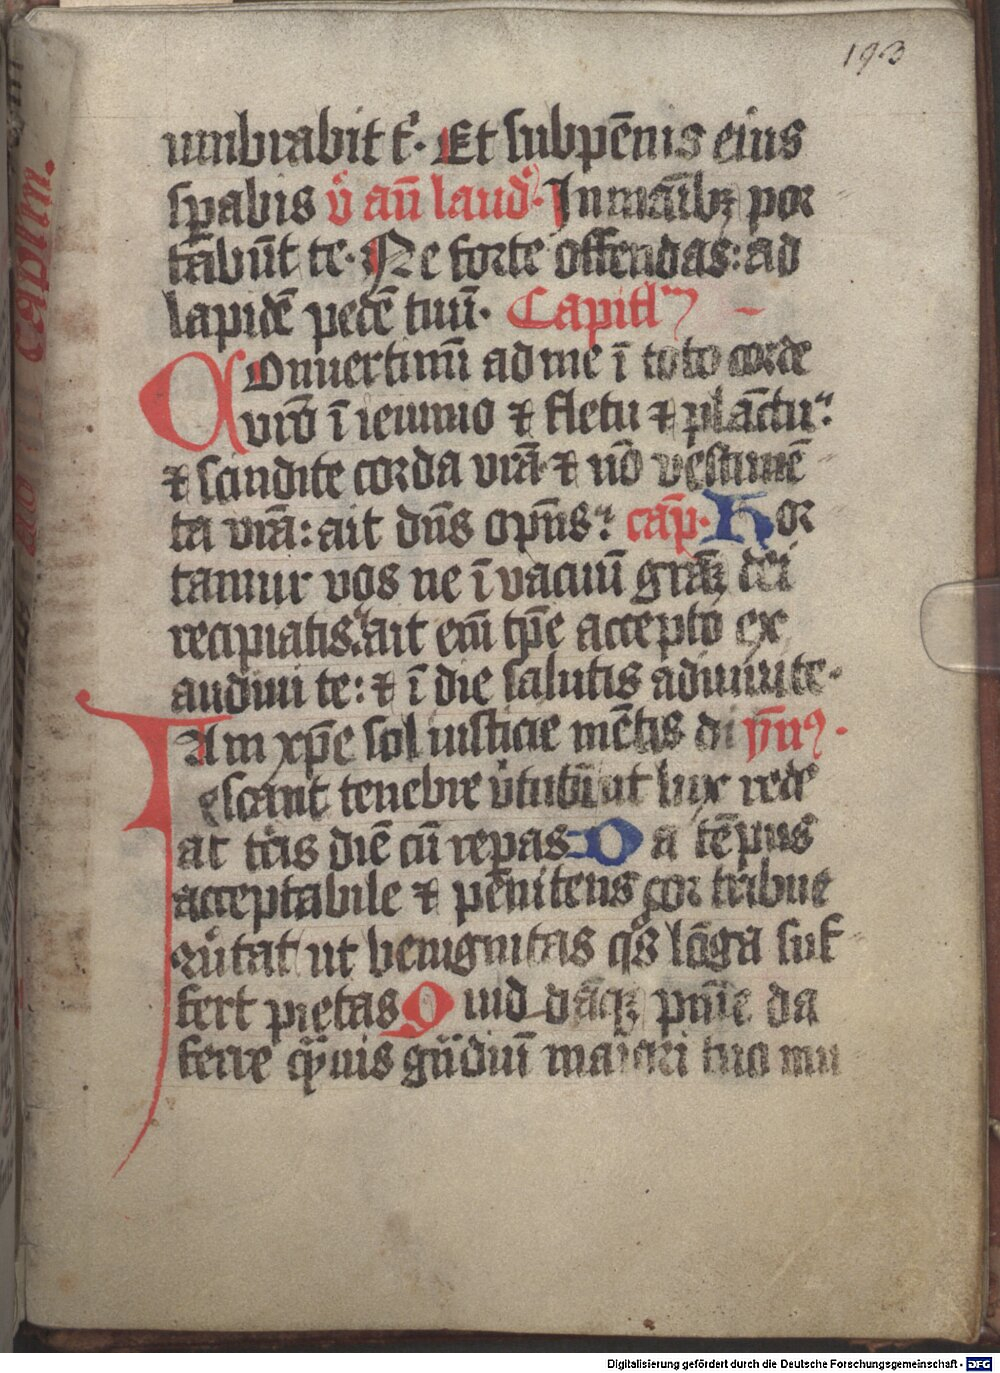 193
umbrabit t᷒. Et subpēnis eius
spabis v̊ an̄ laud᷒. In manib; por
tabūt te. Ne forte offendas: ad
lapidē pedē tuū. Capitl̄m
Conuertimī ad me ī toto corde
vrō ī ieiunio ⁊ fletu ⁊ planctu:
⁊ scindite corda vrā ⁊ nō vestimē
ta vrā: ait dn̄s opn̄s: cāp. Hor
tamur vos ne ī vacuū grāꝫ dei
recipiatis. ait enī tp̄e accepto ex
audiui te: ⁊ ī die salutis adiuui te.
Iam xp̄e sol iusticie mētis di ȳn9.
escant tenebre v̓tutū ut lux rede
at tr̄is diē cū repas Da tēpus
acceptabile ⁊ penitens cor tribue
ut benignitas qs lōga suf
fert pietas Quid dāqꝫ pnīe da
ferre qͣuis gͣdiuī maiori tuo mu
Digitalisierung gefördert durch die Deutsche Forschungsgemeinschaft - DFG